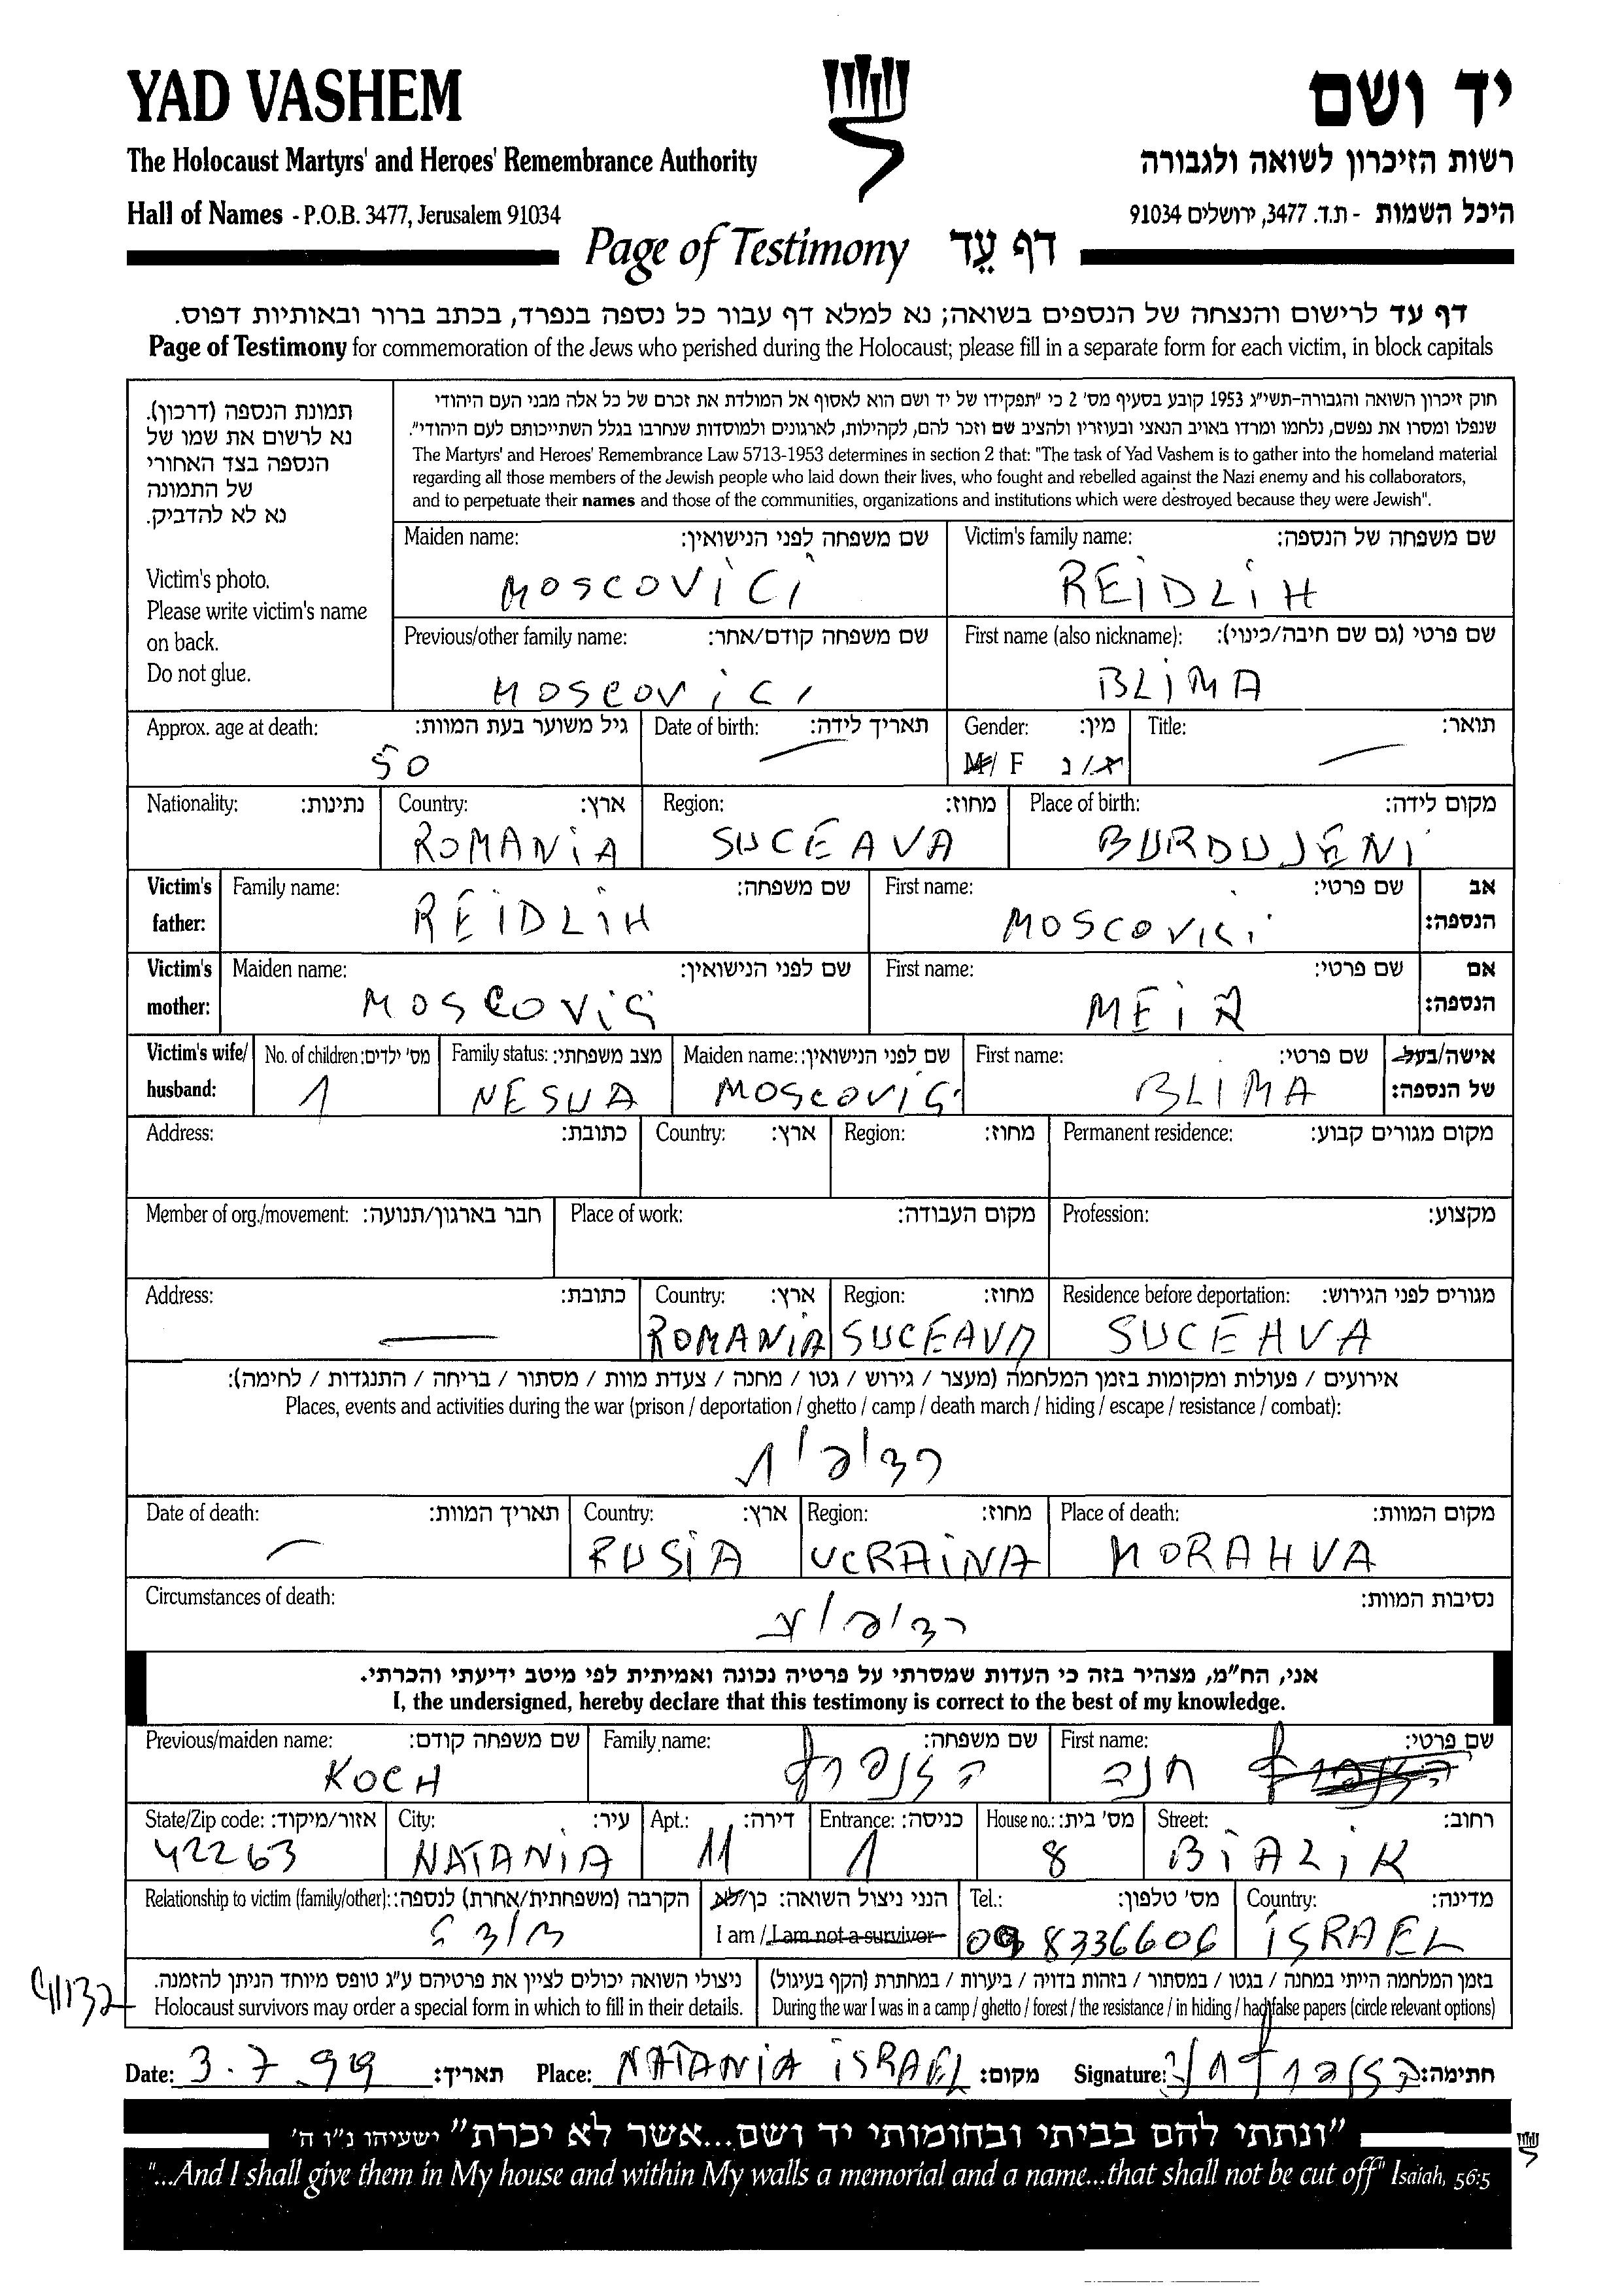 YAD VASHEM
יד ושם
The Holocaust Martyrs' and Heroes' Remembrance Authority
רשות הזיכרון לשואה ולגבורה
Hall of Names - P.O.B. 3477, Jerusalem 91034
היכל השמות - ת.ד. 3477, ירושלים 91034
Page of Testimony דף עֵד
דף עד לרישום והנצחה של הנספים בשואה; נא למלא דף עבור כל נספה בנפרד, בכתב ברור ובאותיות דפוס.
Page of Testimony for commemoration of the Jews who perished during the Holocaust; please fill in a separate form for each victim, in block capitals
תמונת הנספה (דרכון).
נא לרשום את שמו של
הנספה בצד האחורי
של התמונה
נא לא להדביק.
Victim's photo.
Please write victim's name
on back.
Do not glue.
חוק זיכרון השואה והגבורה-תשי"ג 1953 קובע בסעיף מס' 2 כי "תפקידו של יד ושם הוא לאסוף אל המולדת את זכרם של כל אלה מבני העם היהודי
שנפלו ומסרו את נפשם, נלחמו ומרדו באויב הנאצי ובעוזריו ולהציב שם וזכר להם, לקהילות, לארגונים ולמוסדות שנחרבו בגלל השתייכותם לעם היהודי".
The Martyrs' and Heroes' Remembrance Law 5713-1953 determines in section 2 that: "The task of Yad Vashem is to gather into the homeland material
regarding all those members of the Jewish people who laid down their lives, who fought and rebelled against the Nazi enemy and his collaborators,
and to perpetuate their names and those of the communities, organizations and institutions which were destroyed because they were Jewish".
Maiden name: שם משפחה לפני הנישואין: Victim's family name: שם משפחה של הנספה:
MOSCOVICI REIDLIH
Previous/other family name: שם משפחה קודם/אחר: First name (also nickname): שם פרטי (גם שם חיבה/כינוי):
MOSCOVICI BLIMA
Approx. age at death: גיל משוער בעת המוות: Date of birth: תאריך לידה: Gender: מין: Title: תואר:
50 — M/ F ז/נ —
Nationality: נתינות: Country: ארץ: Region: מחוז: Place of birth: מקום לידה:
ROMANIA SUCEAVA BURDUJENI
Victim's father: Family name: שם משפחה: First name: שם פרטי: אב הנספה:
REIDLIH MOSCOVICI
Victim's mother: Maiden name: שם לפני הנישואין: First name: שם פרטי: אם הנספה:
MOSCOVICI MEIA
Victim's wife/ husband: No. of children: מס' ילדים: Family status: מצב משפחתי: Maiden name: שם לפני הנישואין: First name: שם פרטי: אישה/בעל של הנספה:
1 NESUA MOSCOVICI BLIMA
Address: כתובת: Country: ארץ: Region: מחוז: Permanent residence: מקום מגורים קבוע:
Member of org./movement: חבר בארגון/תנועה: Place of work: מקום העבודה: Profession: מקצוע:
Address: כתובת: Country: ארץ: Region: מחוז: Residence before deportation: מגורים לפני הגירוש:
— ROMANIA SUCEAVA SUCEAVA
אירועים / פעולות ומקומות בזמן המלחמה (מעצר / גירוש / גטו / מחנה / צעדת מוות / מסתור / בריחה / התנגדות / לחימה):
Places, events and activities during the war (prison / deportation / ghetto / camp / death march / hiding / escape / resistance / combat):
רציפות
Date of death: תאריך המוות: Country: ארץ: Region: מחוז: Place of death: מקום המוות:
— RUSIA UCRAINA MORAHVA
Circumstances of death: נסיבות המוות:
אני, הח"מ, מצהיר בזה כי העדות שמסרתי על פרטיה נכונה ואמיתית לפי מיטב ידיעתי והכרתי.
I, the undersigned, hereby declare that this testimony is correct to the best of my knowledge.
Previous/maiden name: שם משפחה קודם: Family name: שם משפחה: First name: שם פרטי:
KOCH הלפרן חנה
State/Zip code: אזור/מיקוד: City: עיר: Apt.: דירה: Entrance: כניסה: House no.: מס' בית: Street: רחוב:
42263 NATANIA 11 1 8 BIALIK
Relationship to victim (family/other): הקרבה (משפחתית/אחרת) לנספה: הנני ניצול השואה: כן/לא Tel.: מס' טלפון: Country: מדינה:
דודה I am / I am not a survivor 09 8336606 ISRAEL
ניצולי השואה יכולים לציין את פרטיהם ע"ג טופס מיוחד הניתן להזמנה. בזמן המלחמה הייתי במחנה / בגטו / במסתור / בזהות בדויה / ביערות / במחתרת (הקף בעיגול)
Holocaust survivors may order a special form in which to fill in their details. During the war I was in a camp / ghetto / forest / the resistance / in hiding / had false papers (circle relevant options)
Date: 3.7.99 תאריך: Place: NATANIA ISRAEL מקום: Signature: חתימה:
"ונתתי להם בביתי ובחומותי יד ושם...אשר לא יכרת" ישעיהו נ"ו ה'
"...And I shall give them in My house and within My walls a memorial and a name...that shall not be cut off" Isaiah, 56:5